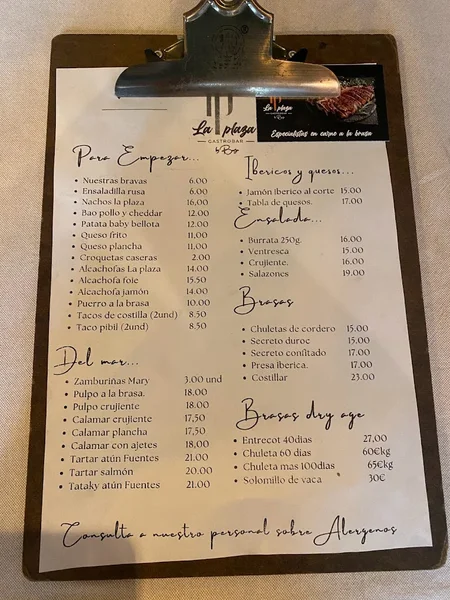 La plaza
GASTROBAR
La plaza
Especialistas en carne a la brasa
Para Empezar...
Nuestras bravas 6.00
Ensaladilla rusa 6.00
Nachos la plaza 16,00
Bao pollo y cheddar 12.00
Patata baby bellota 12.00
Queso frito 11,00
Queso plancha 11,00
Croquetas caseras 2.00
Alcachofas La plaza 14.00
Alcachofa foie 15.50
Alcachofa jamón 14.00
Puerro a la brasa 10.00
Tacos de costilla (2und) 8.50
Taco pibil (2und) 8.50
Del mar...
Zamburiñas Mary 3.00 und
Pulpo a la brasa. 18,00
Pulpo crujiente 18.00
Calamar crujiente 17,50
Calamar plancha 17,50
Calamar con ajetes 18,00
Tartar atún Fuentes 21.00
Tartar salmón 20.00
Tataky atún Fuentes 21.00
Ibericos y quesos...
Jamón iberico al corte 15.00
Tabla de quesos. 17.00
Ensalada...
Burrata 250g. 16.00
Ventresca 15.00
Crujiente. 16.00
Salazones 19.00
Brasas
Chuletas de cordero 15.00
Secreto duroc 15.00
Secreto confitado 17.00
Presa iberica. 17.00
Costillar 23.00
Brasas dry age
Entrecot 40dias 27,00
Chuleta 60 dias 60€kg
Chuleta mas 100dias 65€kg
Solomillo de vaca 30€
Consulta a nuestro personal sobre Alergenos